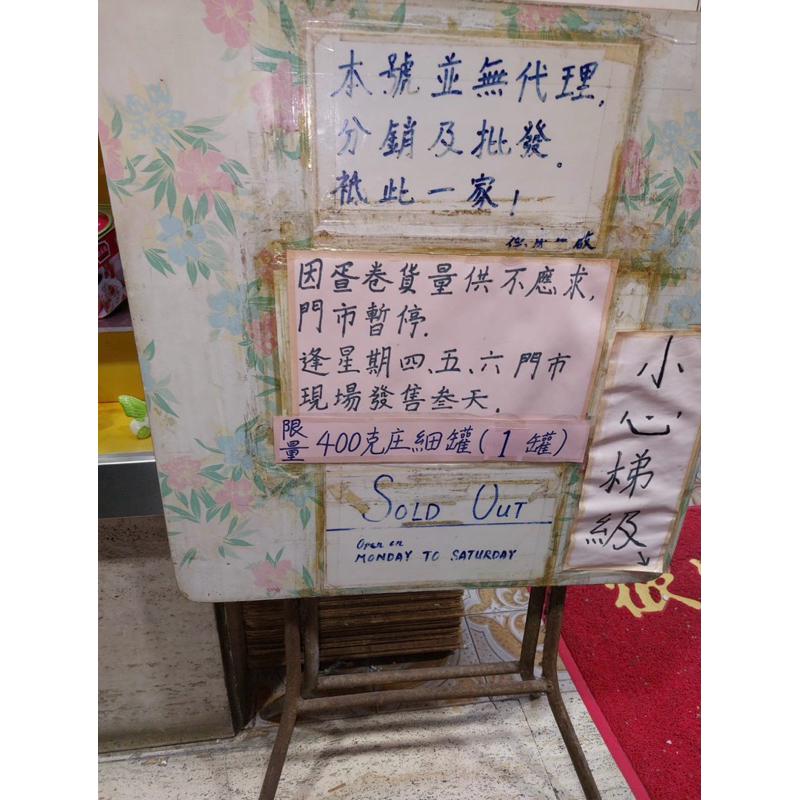 本號並無代理,
分銷及批發。
祗此一家!
因蛋卷貨量供不應求,
門市暫停.
逢星期四、五、六門市
現場發售叁天.
限量 400克庄細罐(1罐)
SOLD OUT
Open on
MONDAY TO SATURDAY
小心梯級